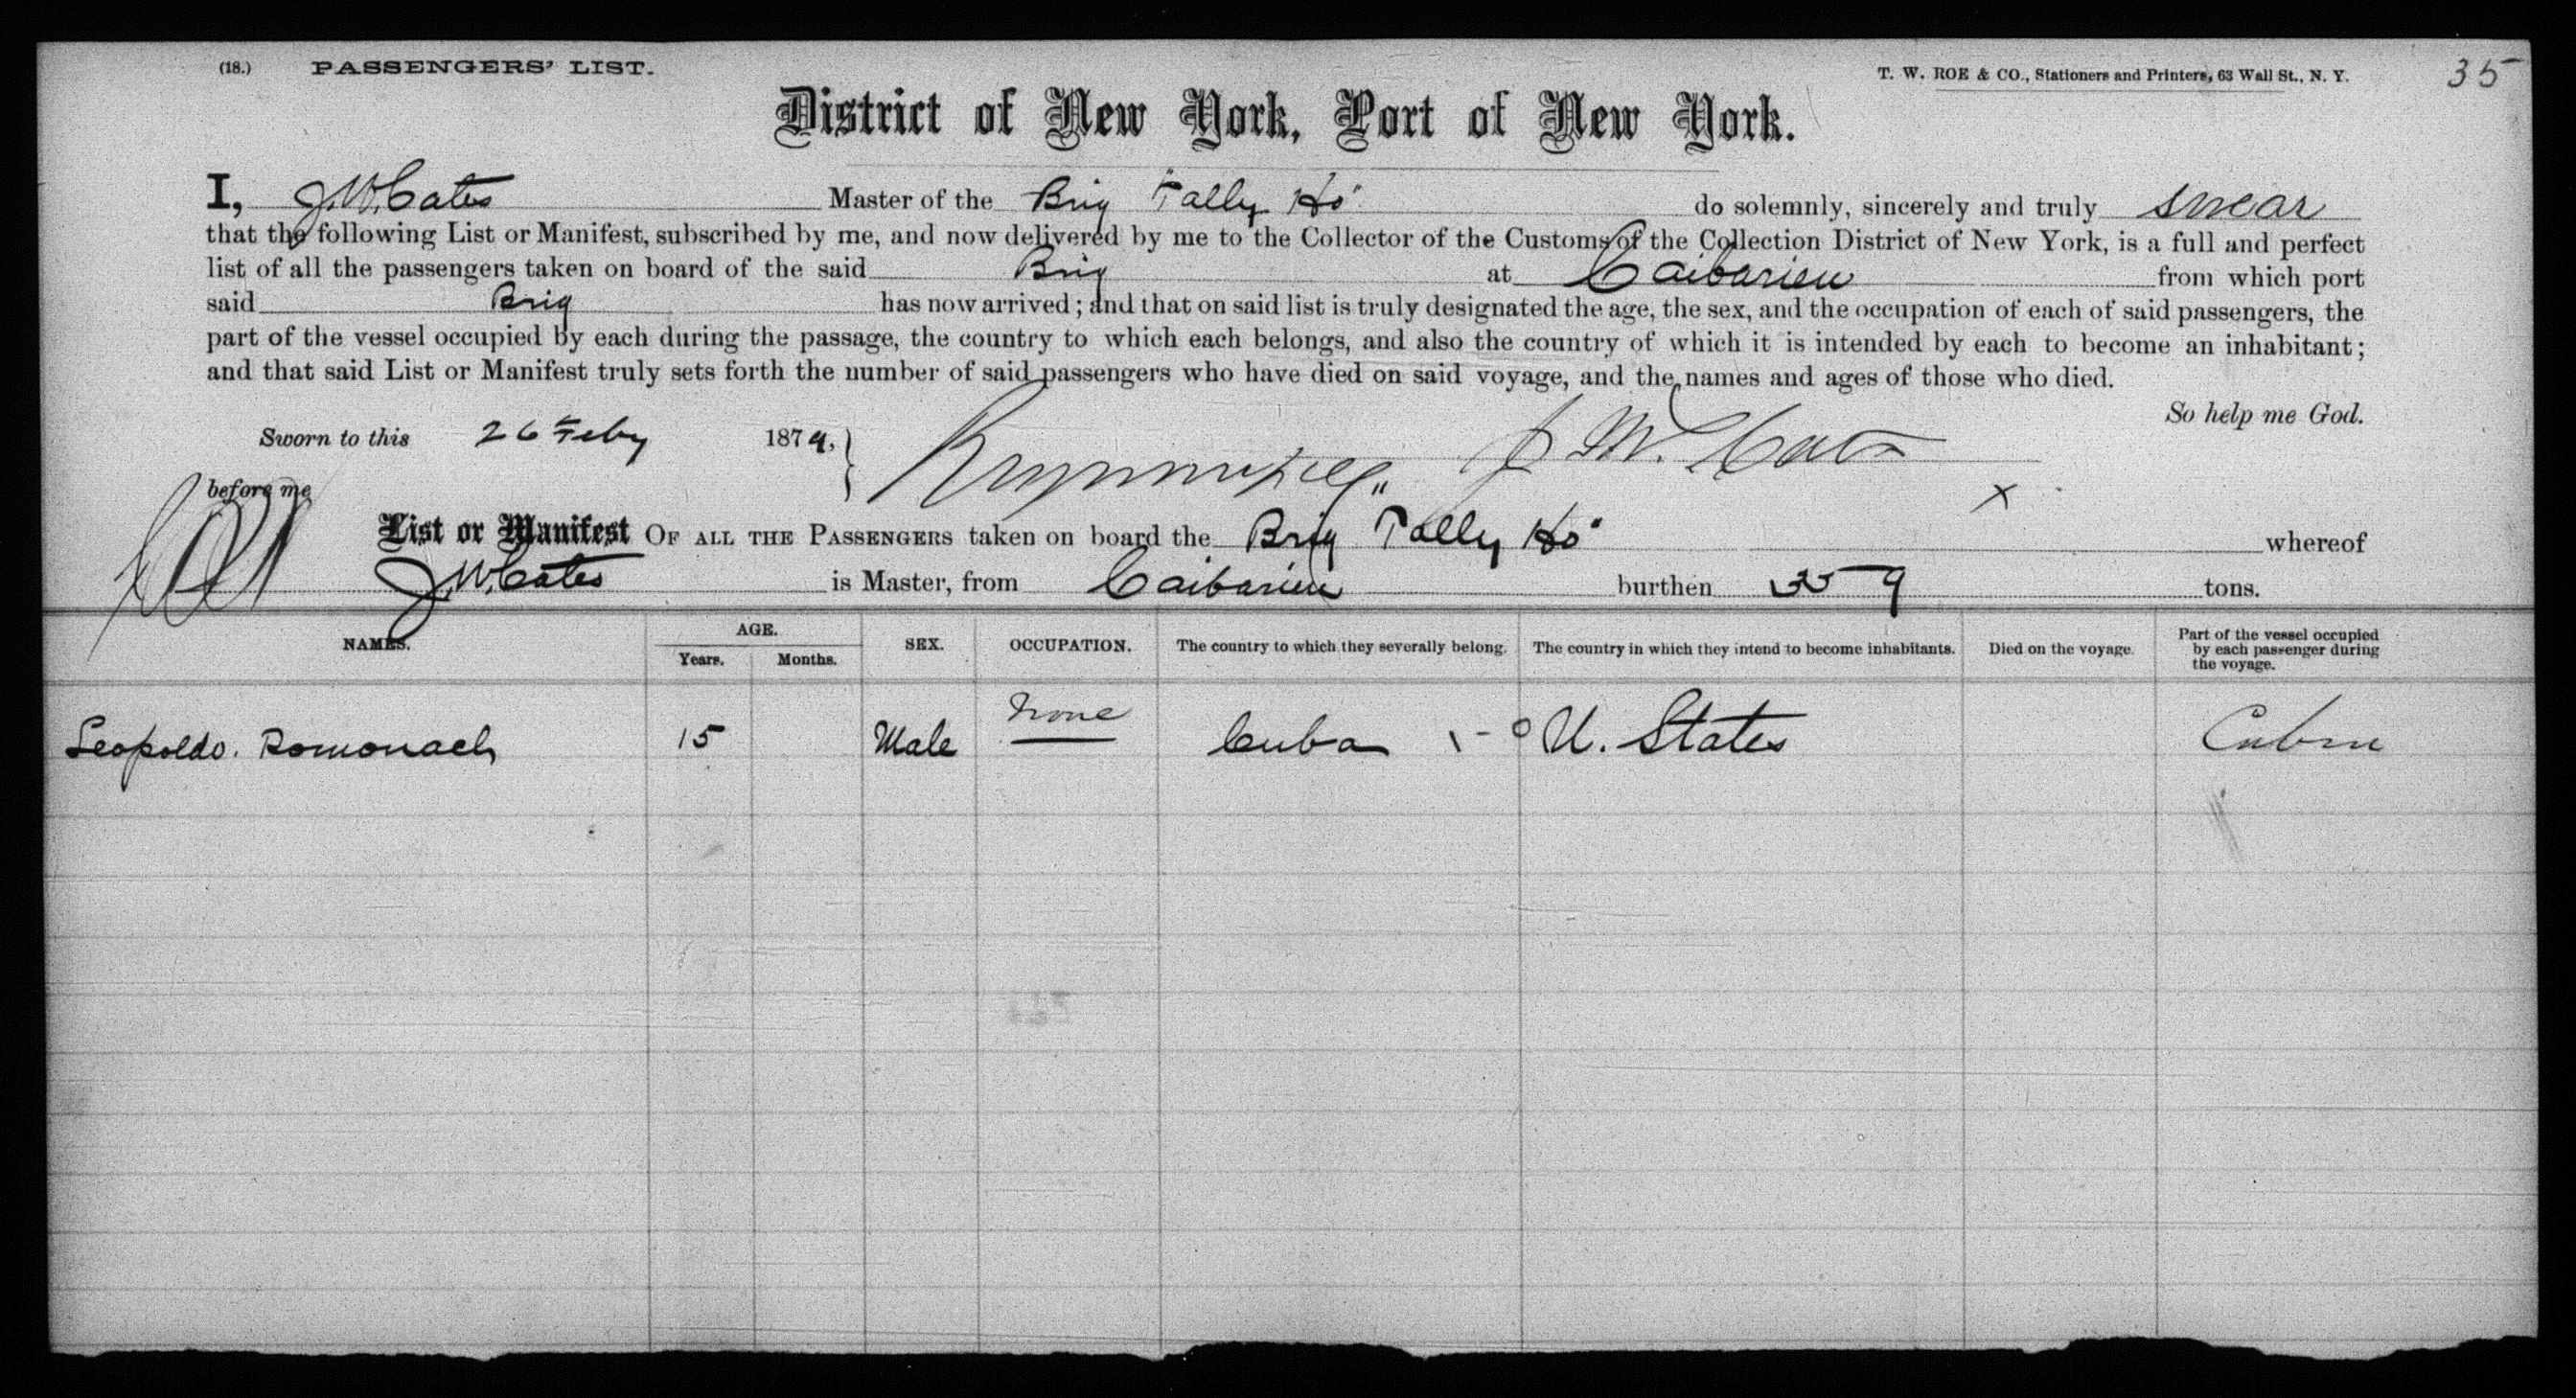 (18.) PASSENGERS' LIST. T. W. ROE & CO., Stationers and Printers, 63 Wall St., N. Y. 35
District of New York, Port of New York.
I, J. W. Cates Master of the Brig "Tally Ho" do solemnly, sincerely and truly swear
that the following List or Manifest, subscribed by me, and now delivered by me to the Collector of the Customs of the Collection District of New York, is a full and perfect
list of all the passengers taken on board of the said Brig at Caibarien from which port
said Brig has now arrived; and that on said list is truly designated the age, the sex, and the occupation of each of said passengers, the
part of the vessel occupied by each during the passage, the country to which each belongs, and also the country of which it is intended by each to become an inhabitant;
and that said List or Manifest truly sets forth the number of said passengers who have died on said voyage, and the names and ages of those who died.
So help me God.
Sworn to this 26 Feby 1879, J. W. Cates
before me
X
List or Manifest OF ALL THE PASSENGERS taken on board the Brig "Tally Ho" whereof
J. W. Cates is Master, from Caibarien burthen 359 tons.
NAMES. AGE. Years. Months. SEX. OCCUPATION. The country to which they severally belong. The country in which they intend to become inhabitants. Died on the voyage. Part of the vessel occupied by each passenger during the voyage.
Leopoldo. Romonach 15 Male None Cuba U. States Cabin